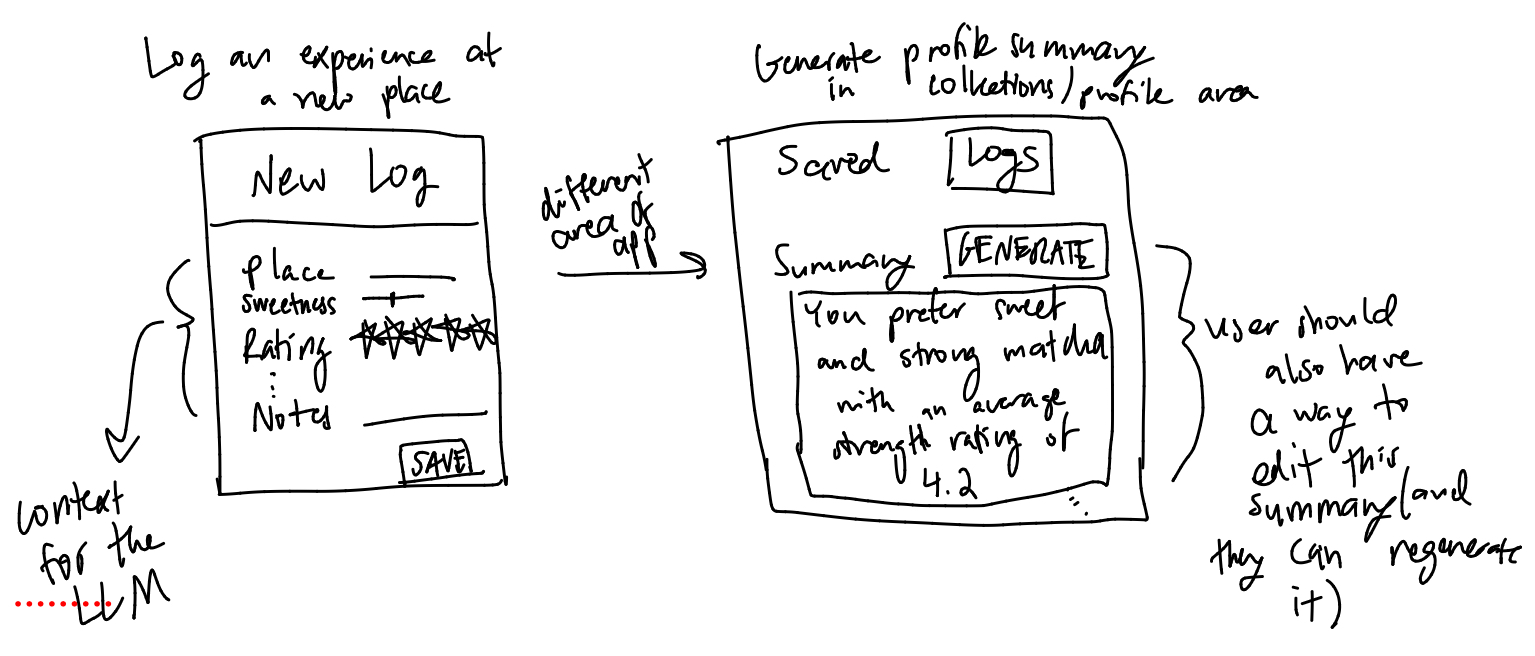 Log an experience at
a new place
New Log
place
sweetness
Rating
Notes
SAVE
context
for the
LLM
different
area of
app
Generate profile summary
in collections/profile area
Saved Logs
Summary GENERATE
You prefer sweet
and strong matcha
with an average
strength rating of
4.2
user should
also have
a way to
edit this
summary (and
they can regenerate
it)